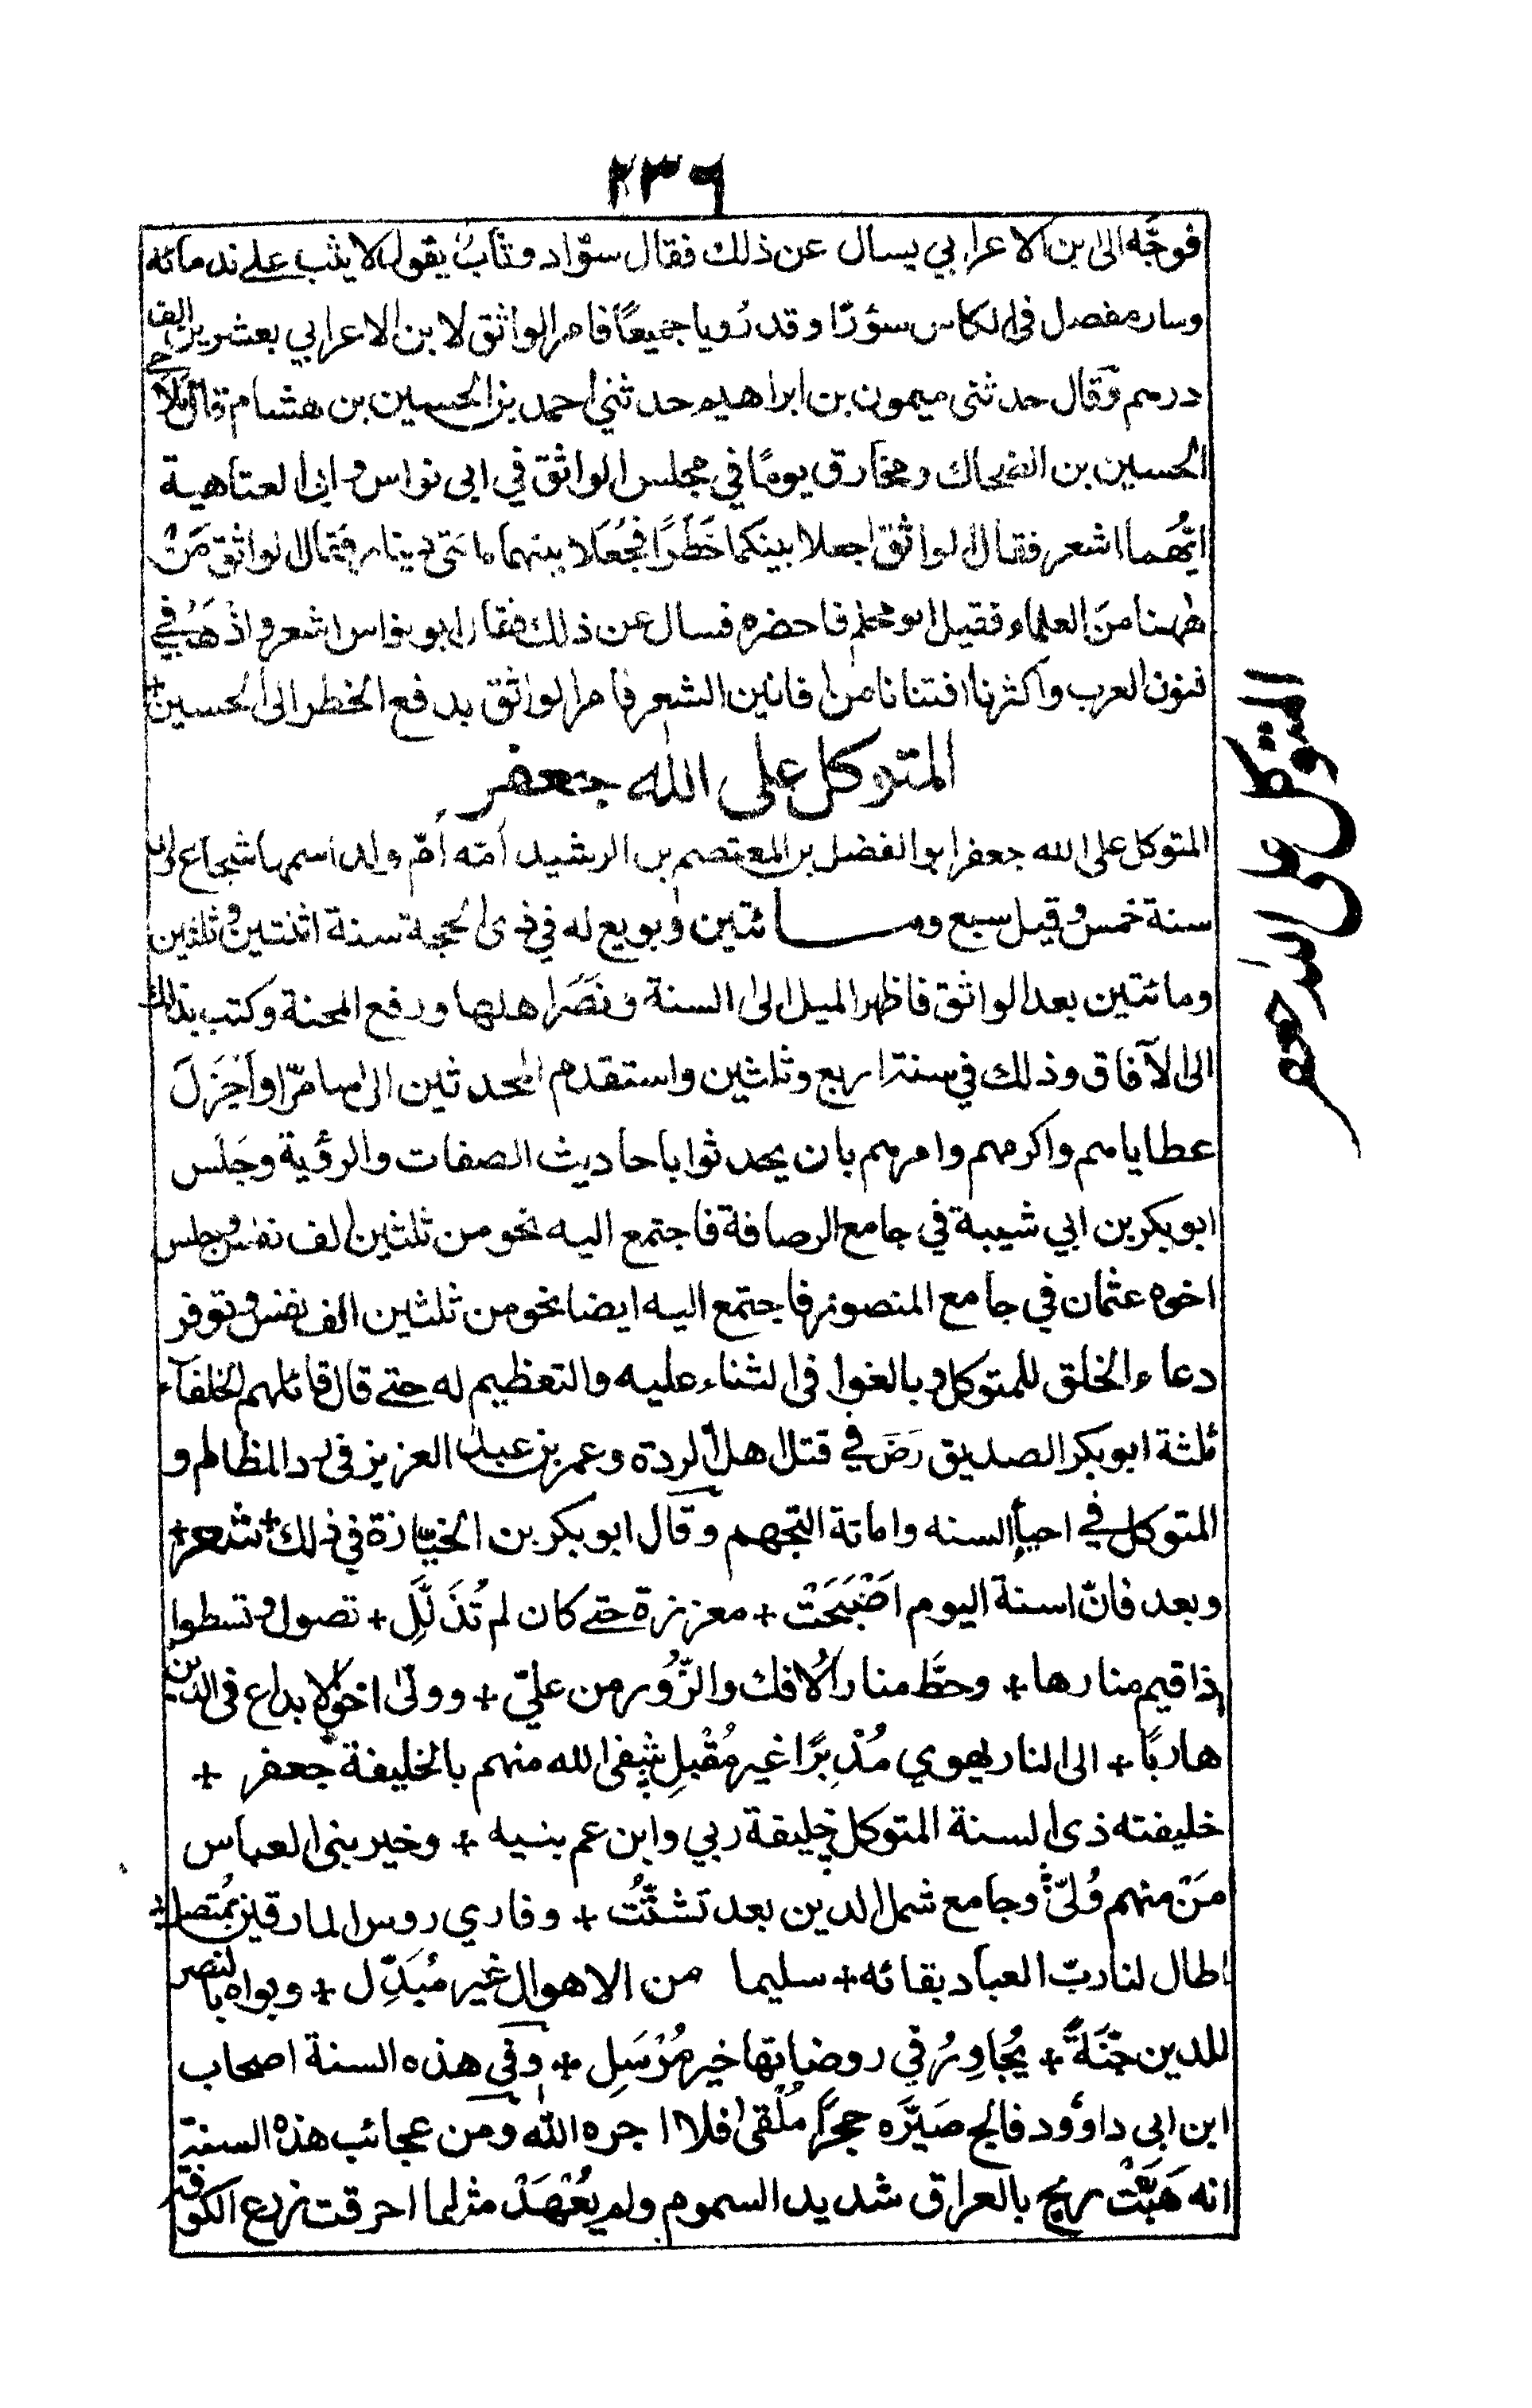 ٢٣٦
فوجّه الى بن الاعرابي يسال عن ذلك فقال سوّاد وثّابٌ يقول لا يثب على ندمائه
وسار مفصل في الكاس سؤرًا وقد رُويا جميعًا فامر الواثق لابن الاعرابي بعشرين الف
درهم وقال حدثنى ميمون بن ابراهيم حدثني احمد بن الحسين بن هشام قال تلاحى
الحسين بن الضحاك ومخارق يومًا في مجلس الواثق في ابى نواس وابى العتاهية
ايُّهما اشعر فقال الواثق اجعلا بينكما خَطَرًا فجُعَلا بينهما مائتى دينار فقال الواثق مَنْ
ههنا منَ العلماء فقيل ابو محلم فاحضره فسال عن ذلك فقال ابو نواس اشعر واذْهَبُ في
فنون العرب واكثرها افتنانا من افانين الشعر فامر الواثق بدفع الخطر الى الحسين +
المتوكل على الله جعفر
المتوكل على الله جعفر ابو الفضل بن المعتصم بن الرشيد امّه امّ ولد اسمها شجاع ولد
سنة خمس وقيل سبع ومــــائتين وبويع له في ذى الحجة سنة اثنتين وثلثين
ومائتين بعد الواثق فاظهر الميل الى السنة ونَصَرَ اهلها ورفع المحنة وكتب بذلك
الى الآفاق وذلك في سنة اربع وثلثين واستقدم المحدثين الى سامرّا واَجْزَلَ
عطاياهم واكرمهم وامرهم بان يحدثوا باحاديث الصفات والرؤية وجَلَس
ابوبكر بن ابي شيبة في جامع الرصافة فاجتمع اليه نحو من ثلثين الف نفس وجلس
اخوه عثمان في جامع المنصور فاجتمع اليه ايضا نحو من ثلثين الف نفس وتوفر
دعاء الخلق للمتوكل وبالغوا فى الثناء عليه والتعظيم له حتى قال قائلهم الخلفاء
ثلثة ابوبكر الصديق رض في قتل اهل الردة وعمر بن عبد العزيز فى رد المظالم و
المتوكل في احياء السنه واماتة التجهم وقال ابوبكر بن الخبّازة في ذلك + شعر +
وبعد فانّ اسنة اليوم اصْبَحَتْ + معززة حتى كان لم تُذَلَّلِ + تصول وتسطوا
اذ اقيم منارها + وحطّ منار الافك والزُّور من عليّ + وولّى اخو الابداع فى الدين
هاربًا + الى النار يهوي مُدْبِرًا غير مُقْبِلِ + شفى الله منهم بالخليفة جعفر +
خليفته ذى السنة المتوكل + خليفة ربي وابن عم بنيه + وخير بنى العباس
مَنْ منهم وُلىّ + وجامع شمل الدين بعد تشتّتُ + وفاري روس المارقين بمُنصل +
اطال لنا ربّ العباد بقائه + سليما من الاهوال غير مُبَدّل + وبواه بالنصر
للدين جنّةً + يُجاوِرُ في روضاتها خير مُرْسَلِ + وفى هذه السنة اصحاب
ابن ابي داوُود فالج صَيَّرَه حجرًا مُلْقىً فلا اجره الله ومن عجائب هذه السنة
انه هَبّتْ ريح بالعراق شديد السموم ولم يعْهَدْ مثلها احرقت زرع الكوفة
المتوكل على الله جعفر